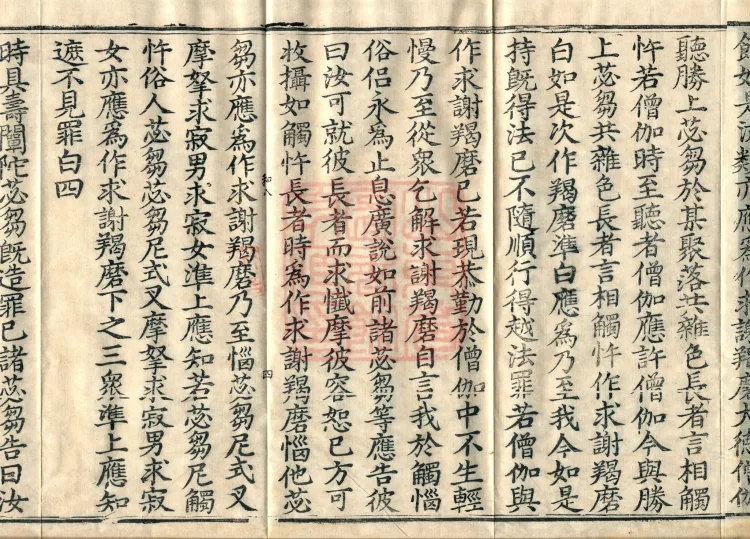 亦應爲作求謝羯磨大德僧伽
聽勝上苾芻於某聚落共雜色長者言相觸
忤若僧伽時至聽者僧伽應許僧伽今與勝
上苾芻共雜色長者言相觸忤作求謝羯磨
白如是次作羯磨準白應爲乃至我今如是
持旣得法已不隨順行得越法罪若僧伽與
作求謝羯磨已若現恭勤於僧伽中不生輕
慢乃至從衆乞解求謝羯磨自言我於觸惱
俗侶永爲止息廣說如前諸苾芻等應告彼
曰汝可就彼長者而求懺摩彼容恕已方可
收攝如觸忤長者時爲作求謝羯磨惱他苾
和八 四
芻亦應爲作求謝羯磨乃至惱苾芻尼式叉
摩拏求寂男求寂女準上應知若苾芻尼觸
忤俗人苾芻苾芻尼式叉摩拏求寂男求寂
女亦應爲作求謝羯磨下之三衆準上應知
遮不見罪白四
時具壽闡陀苾芻旣造罪已諸苾芻告曰汝